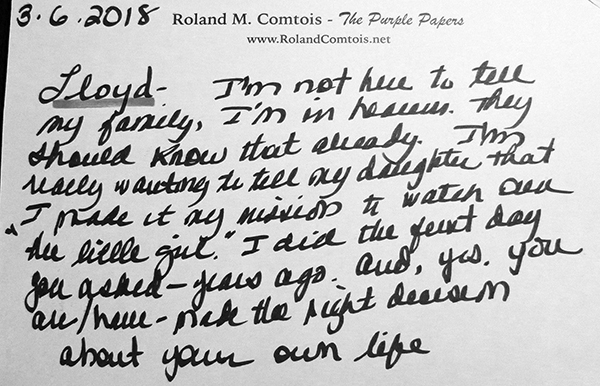 3.6.2018
Roland M. Comtois - The Purple Papers
www.RolandComtois.net
Lloyd- I'm not here to tell
my family, I'm in heaven. They
should know that already. I'm
really wanting to tell my daughter that
"I made it my mission to watch over
the little girl." I did the first day
you asked - years ago. And, yes. you
are/have - made the right decision
about your own life